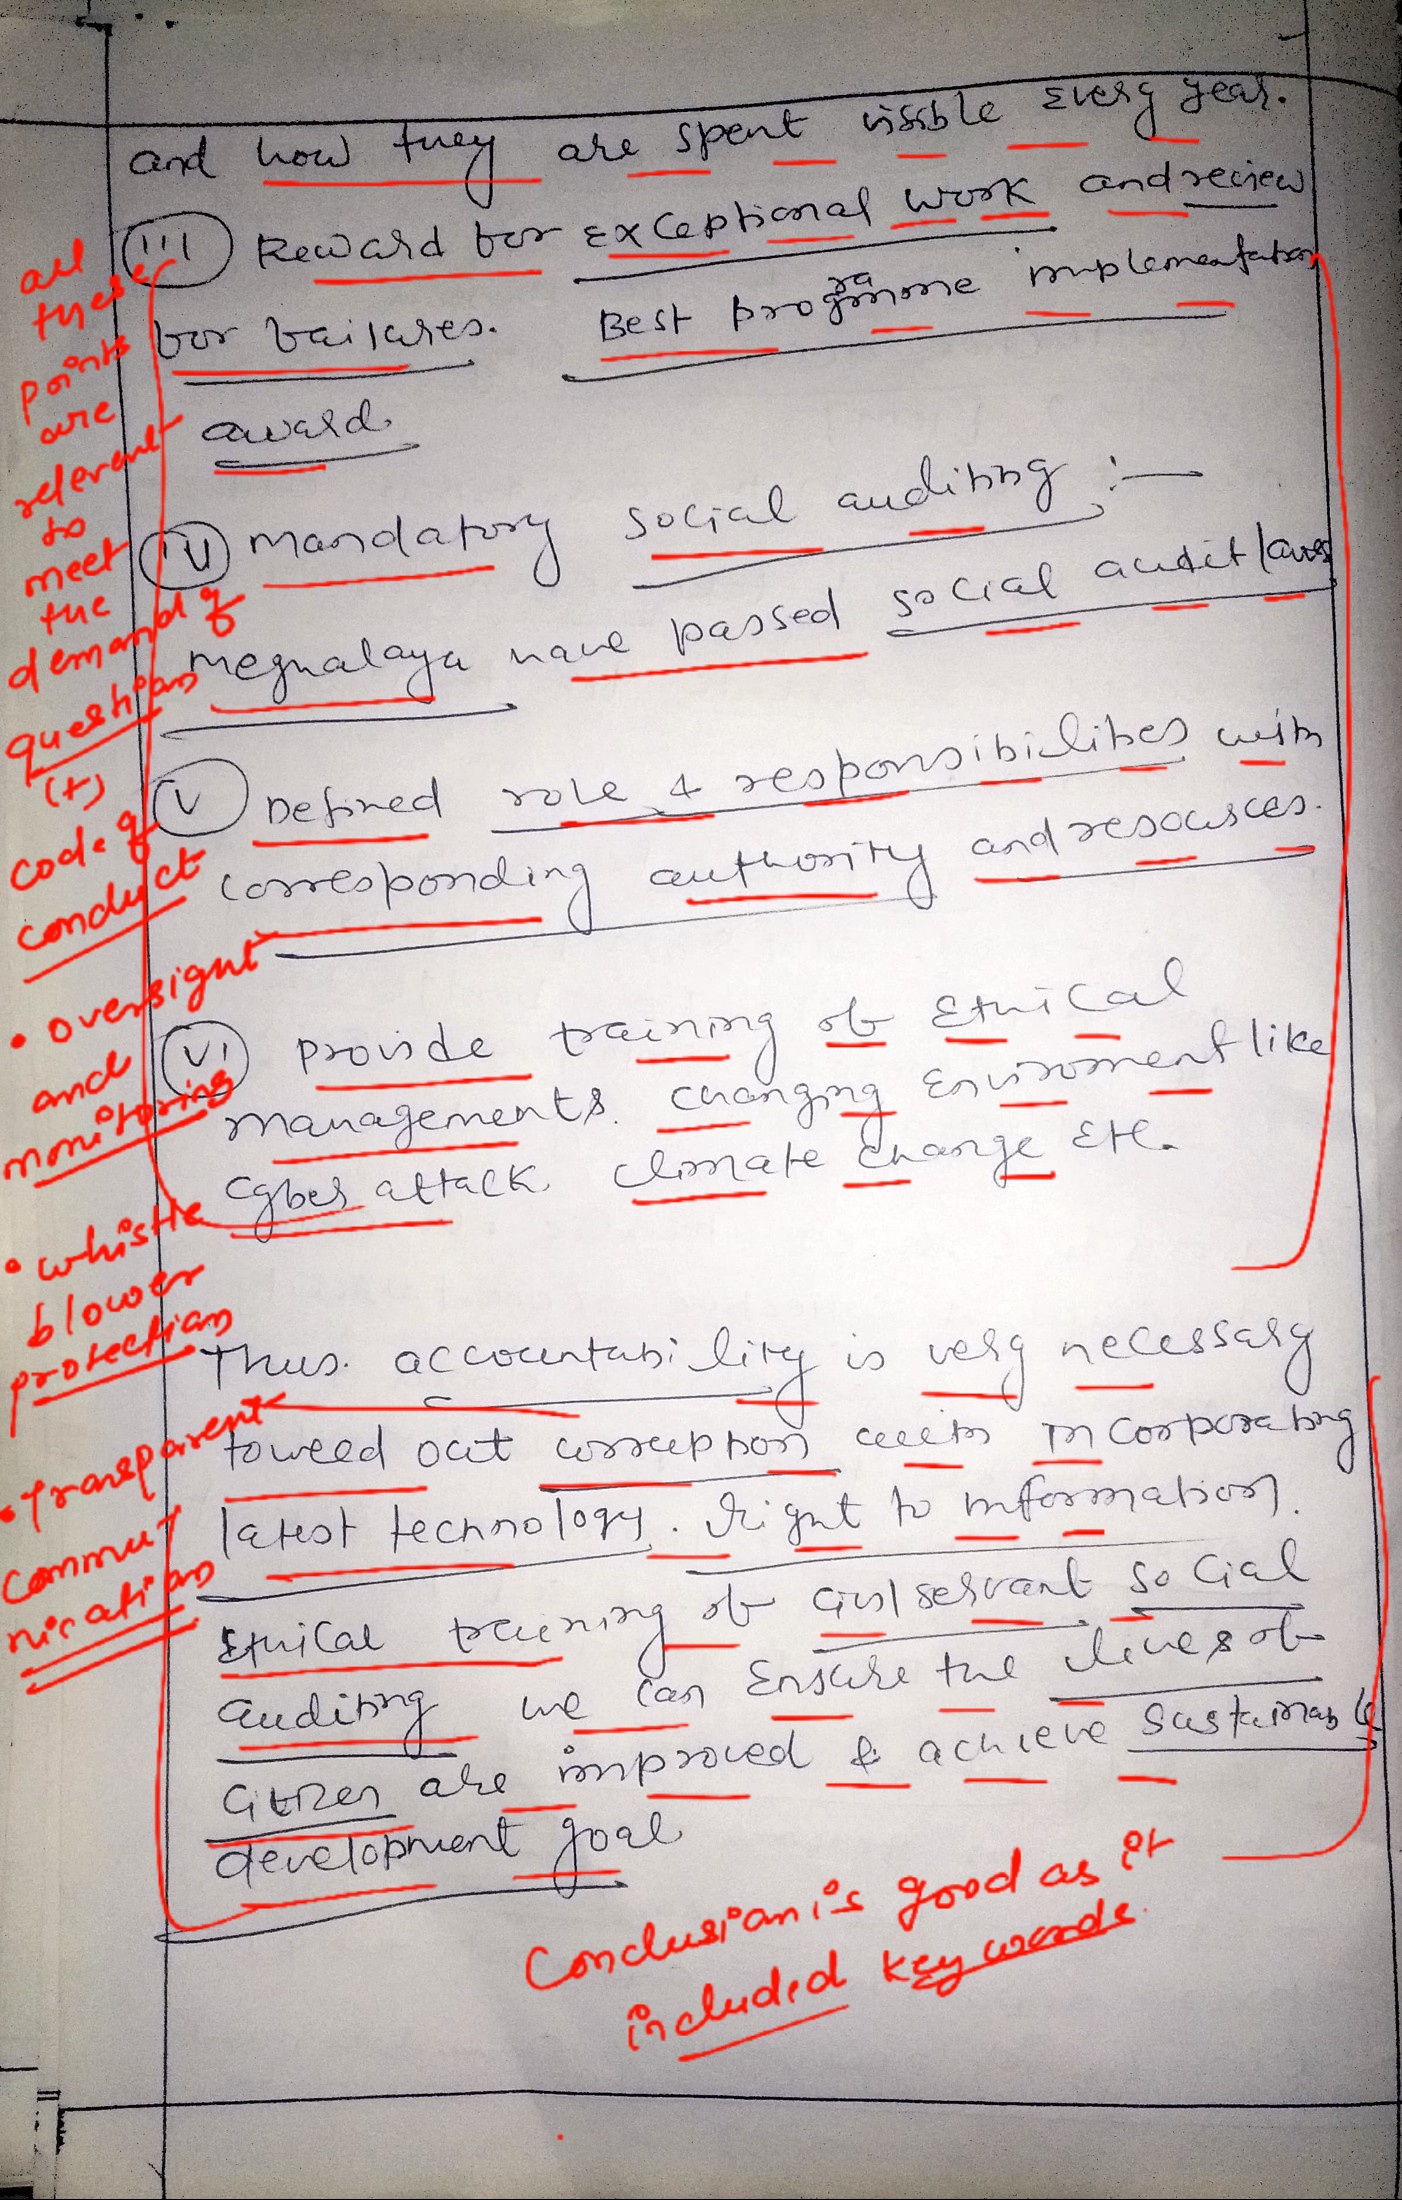 and how they are spent visible every year.
(iii) Reward for exceptional work and review
for failures. Best programme implementation
award.
(iv) Mandatory social auditing :-
Meghalaya have passed social audit laws
(v) Defined role & responsibilities with
corresponding authority and resources.
(vi) Provide training of Ethical
managements. Changing Enviroment like
Cyber attack, climate change etc.
Thus. accountability is very necessary
to weed out corruption with incorporating
latest technology. Right to information.
Ethical training of civil servant social
auditing we can ensure the lives of
citizen are improved & achieve sustainable
development goal
all
these
points
are
relevant
to
meet
the
demand of
question
(+)
code of
conduct
• oversight
and
monitoring
• whistle
blower
protection
• Transparent
commu
nication
Conclusion is good as it
included key words.